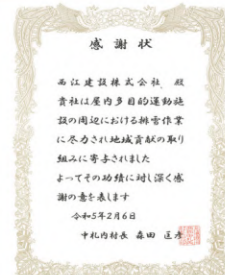 感謝状
西江建設株式会社 殿
貴社は屋内多目的運動施
設の周辺における排雪作業
に尽力され地域貢献の取り
組みに寄与されました
よってその功績に対し深く感
謝の意を表します
令和5年2月6日
中札内村長 森田 匡彦